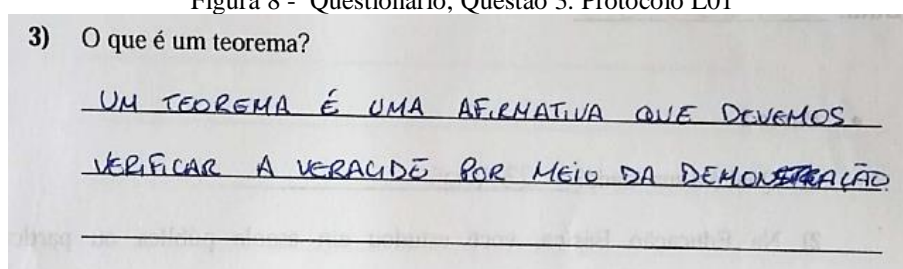 Figura 8 - Questionário, Questão 3. Protocolo L01
3) O que é um teorema?
UM TEOREMA É UMA AFIRMATIVA QUE DEVEMOS
VERIFICAR A VERACIDE POR MEIO DA DEMONSTRAÇÃO